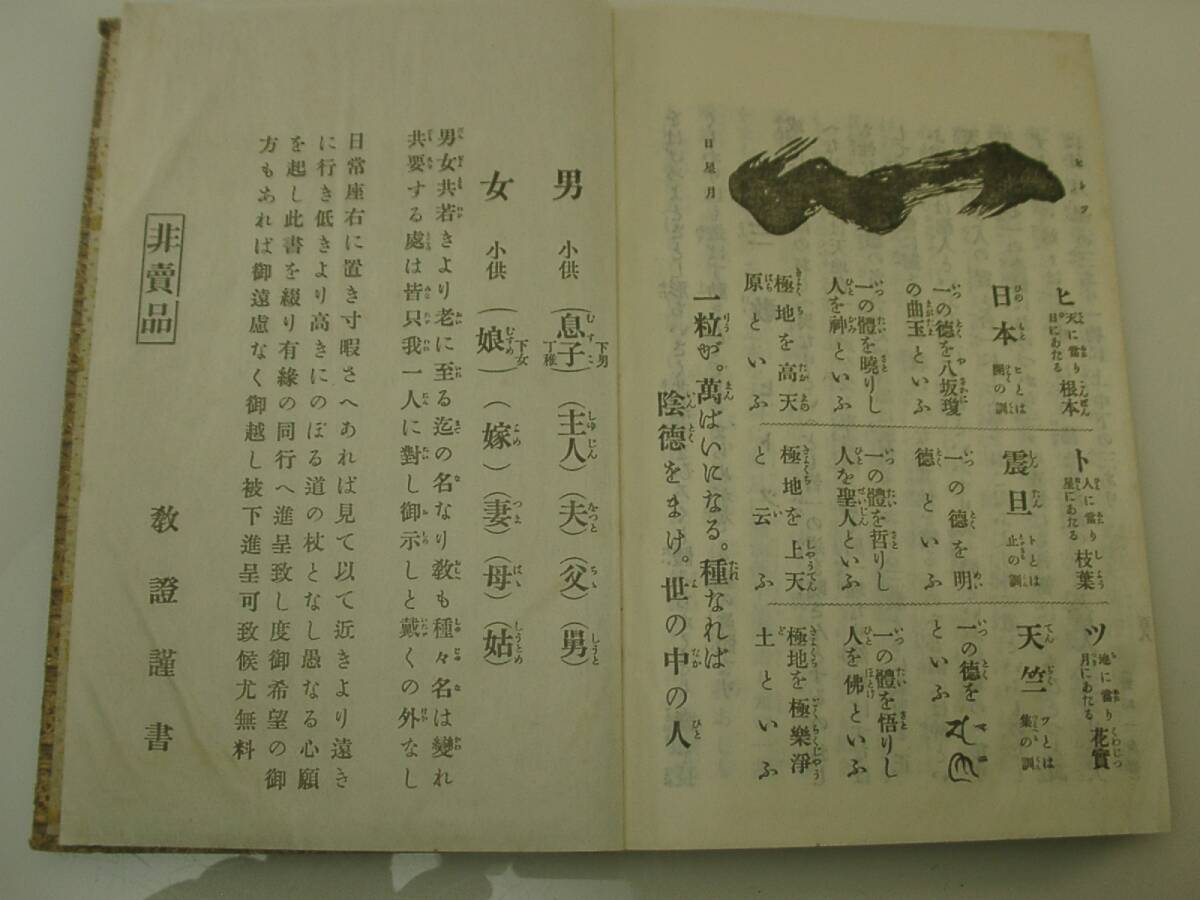 ヒトツ
日星月
ヒ 天に當り 日にあたる 根本
日本 ヒとは 開の訓
一の德を八坂瓊
の曲玉といふ
一の體を曉りし
人を神といふ
極地を高天
原といふ
ト 人に當り 星にあたる 枝葉
震旦 トとは 止の訓
一の德を明
德といふ
一の體を哲りし
人を聖人といふ
極地を上天
と云ふ
ツ 地に當り 月にあたる 花實
天竺 ツとは 集の訓
一の德を
といふ
一の體を悟りし
人を佛といふ
極地を極樂淨
土といふ
一粒が。萬ばいになる。種なれば
陰德をまけ。世の中の人
男 小供(息子 下男 丁稚)(主人)(夫)(父)(男)
女 小供(娘 下女)(嫁)(妻)(母)(姑)
男女共若きより老に至る迄の名なり敎も種々名は變れ
共要する處は皆只我一人に對し御示しと戴くの外なし
日常座右に置き寸暇さへあれば見て以て近きより遠き
に行き低きより高きにのぼる道の杖となし愚なる心願
を起し此書を綴り有緣の同行へ進呈致し度御希望の御
方もあれば御遠慮なく御越し被下進呈可致候尤無料
敎證謹書
非賣品